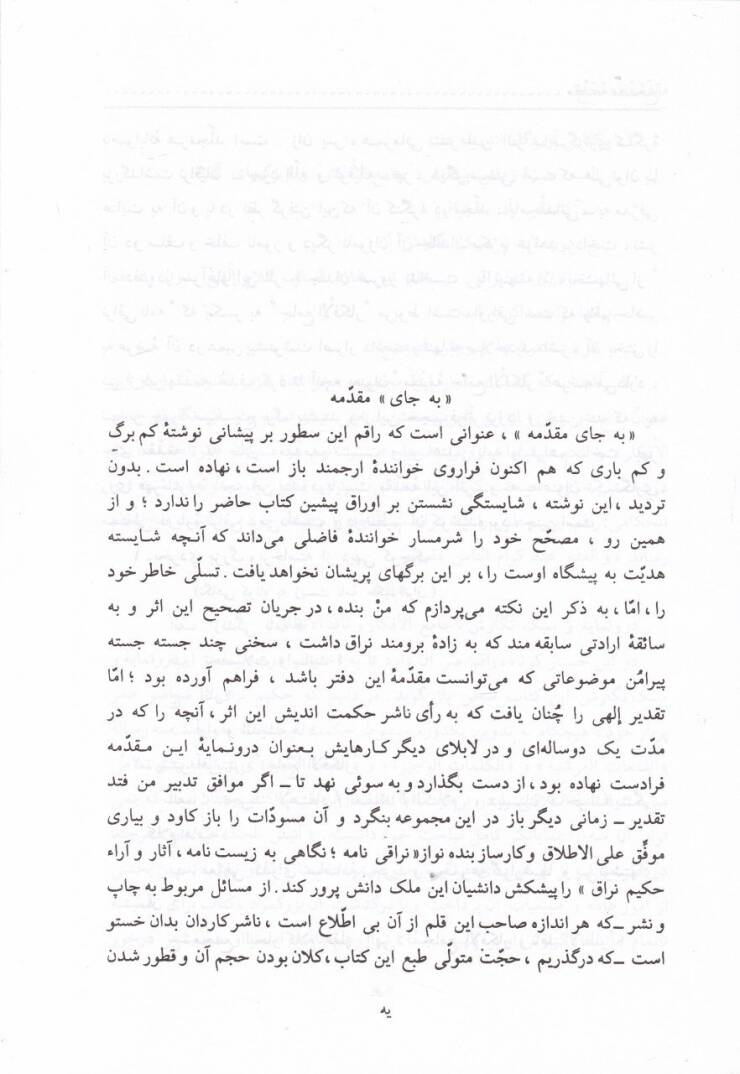 « به جای » مقدّمه
« به جای مقدّمه » ، عنوانی است که راقم این سطور بر پیشانی نوشتهٔ کم برگ
و کم باری که هم اکنون فراروی خوانندهٔ ارجمند باز است ، نهاده است . بدون
تردید ، این نوشته ، شایستگی نشستن بر اوراق پیشین کتاب حاضر را ندارد ؛ و از
همین رو ، مصحّح خود را شرمسار خوانندهٔ فاضلی می‌داند که آنـچه شـایسته
هدیّت به پیشگاه اوست را ، بر این برگهای پریشان نخواهد یافت . تسلّی خاطر خود
را ، امّا ، به ذکر این نکته می‌پردازم که منْ بنده ، در جریان تصحیح این اثر و به
سائقهٔ ارادتی سابقه مند که به زادهٔ برومند نراق داشت ، سخنی چند جسته جسته
پیرامُن موضوعاتی که می‌توانست مقدّمهٔ این دفتر باشد ، فراهم آورده بود ؛ امّا
تقدیر إلهی را چُنان یافت که به رأی ناشر حکمت اندیش این اثر ، آنچه را که در
مدّت یک دوساله‌ای و در لابلای دیگر کارهایش بـعنوان درونـمایهٔ ایـن مـقدّمه
فرادست نهاده بود ، از دست بگذارد و به سوئی نهد تا ــ اگر موافق تدبیر من فتد
تقدیر ــ زمانی دیگر باز در این مجموعه بنگرد و آن مسودّات را باز کاود و بیاری
موفّق علی الاطلاق و کارساز بنده نواز « نراقی نامه ؛ نگاهی به زیست نامه ، آثار و آراء
حکیم نراق » را پیشکش دانشیان این ملک دانش پرور کند . از مسائل مربوط به چاپ
و نشر ــ که هر اندازه صاحب این قلم از آن بی اطّلاع است ، ناشر کاردان بدان خستو
است ــ که درگذریم ، حجّت متولّی طبع این کتاب ، کلان بودن حجم آن و قطور شدن
یه